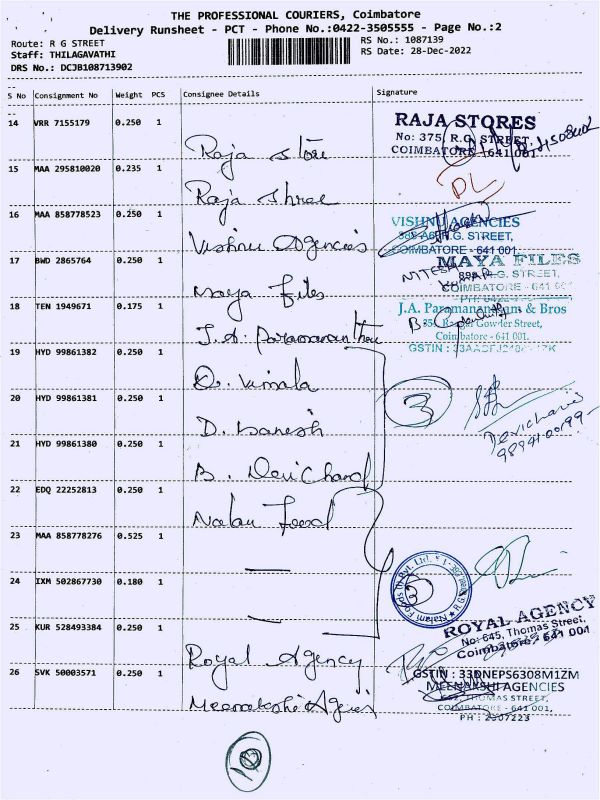 THE PROFESSIONAL COURIERS, Coimbatore
Delivery Runsheet - PCT - Phone No.:0422-3505555 - Page No.:2
Route: R G STREET
RS No.: 1087139
Staff: THILAGAVATHI
RS Date: 28-Dec-2022
DRS No.: DCJB108713902
S No Consignment No Weight PCS Consignee Details Signature
14 VRR 7155179 0.250 1 Raja Store
RAJA STORES
No: 375, R.G. STREET,
COIMBATORE - 641 001
15 MAA 295810020 0.235 1 Raja Shree
DL
16 MAA 858778523 0.250 1 Vishnu Agencies
VISHNU AGENCIES
R.G. STREET,
COIMBATORE - 641 001.
17 BWD 2865764 0.250 1 Maya Files
MAYA FILES
R.G. STREET,
COIMBATORE - 641 001
18 TEN 1949671 0.175 1 J.A. Paramanantham
J.A. Paramanandam & Bros
Gowder Street,
Coimbatore - 641 001.
19 HYD 99861382 0.250 1 Vimala
20 HYD 99861381 0.250 1 D. Danesh
3
21 HYD 99861380 0.250 1 B. Devi Chand
Devichand
22 EDQ 22252813 0.250 1 Nalan Food
23 MAA 858778276 0.525 1
24 IXM 502867730 0.180 1
25 KUR 528493384 0.250 1 Royal Agency
ROYAL AGENCY
No: 645, Thomas Street,
Coimbatore - 641 001
26 SVK 50003571 0.250 1 Meenakshi Agencies
GSTIN : 33DNEPS6308M1ZM
MEENAKSHI AGENCIES
THOMAS STREET,
COIMBATORE - 641 001,
PH : 2307223